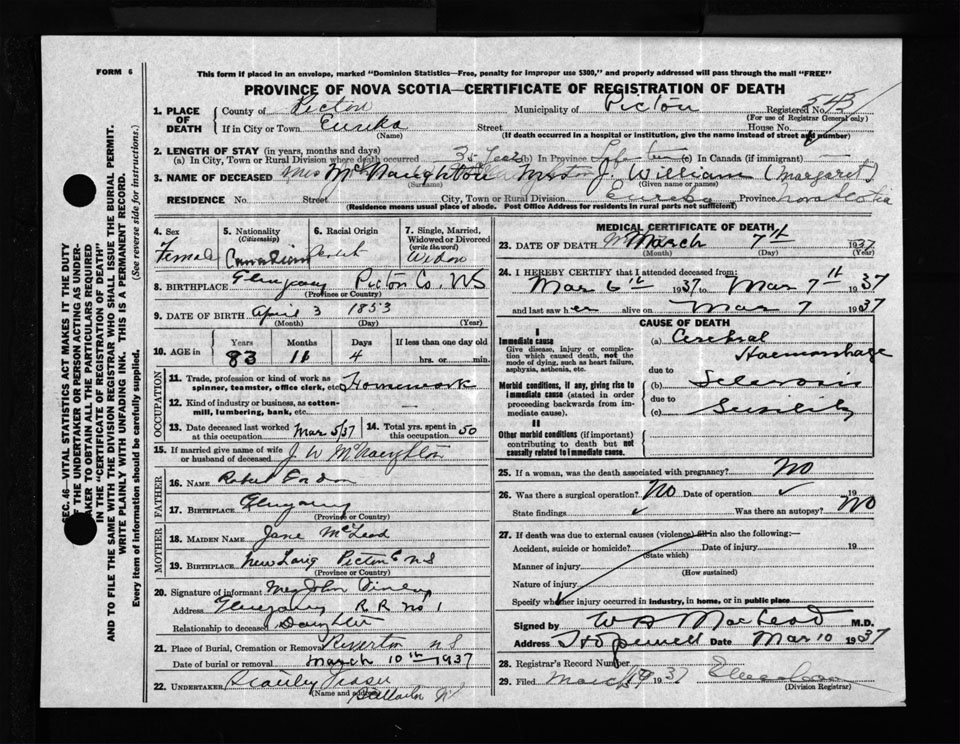 FORM 6
This form if placed in an envelope, marked "Dominion Statistics—Free, penalty for improper use $300," and properly addressed will pass through the mail "FREE"
PROVINCE OF NOVA SCOTIA—CERTIFICATE OF REGISTRATION OF DEATH
1. PLACE OF DEATH
County of Pictou Municipality of Pictou Registered No. 545
(For use of Registrar General only)
If in City or Town Eureka Street House No.
(Name) (If death occurred in a hospital or institution, give the name instead of street and number)
2. LENGTH OF STAY (in years, months and days)
(a) In City, Town or Rural Division where death occurred 35 years (b) In Province Life time (c) In Canada (if immigrant) —
3. NAME OF DECEASED Mrs McNaughton J. William (Margaret)
(Surname) (Given name or names)
RESIDENCE No. Street City, Town or Rural Division Eureka Province Nova Scotia
(Residence means usual place of abode. Post Office Address for residents in rural parts not sufficient)
4. Sex Female
5. Nationality (Citizenship) Canadian
6. Racial Origin
7. Single, Married, Widowed or Divorced (write the word) Widow
8. BIRTHPLACE Glengarry Pictou Co. NS
(Province or Country)
9. DATE OF BIRTH April 3 1853
(Month) (Day) (Year)
10. AGE in Years Months Days If less than one day old
83 11 4 hrs. or min.
OCCUPATION
11. Trade, profession or kind of work as spinner, teamster, office clerk, etc. Homework
12. Kind of industry or business, as cotton-mill, lumbering, bank, etc. —
13. Date deceased last worked at this occupation Mar 5/37
14. Total yrs. spent in this occupation 50
15. If married give name of wife or husband of deceased J W McNaughton
FATHER
16. NAME Robert Gordon
17. BIRTHPLACE Glengarry
(Province or Country)
MOTHER
18. MAIDEN NAME Jane McLeod
19. BIRTHPLACE New Larig Pictou Co NS
(Province or Country)
20. Signature of informant Mrs John
Address Glengarry R R No 1
Relationship to deceased Daughter
21. Place of Burial, Cremation or Removal Riverton NS
Date of burial or removal March 10th 1937
22. UNDERTAKER Stanley Fraser
(Name and address)
MEDICAL CERTIFICATE OF DEATH
23. DATE OF DEATH March 7th 1937
(Month) (Day) (Year)
24. I HEREBY CERTIFY that I attended deceased from:
Mar 6th 1937 to Mar 7th 1937
and last saw her alive on Mar 7 1937
CAUSE OF DEATH
I
Immediate cause
Give disease, injury or complication which caused death, not the mode of dying, such as heart failure, asphyxia, asthenia, etc.
(a) Cerebral Haemorrhage
due to
Morbid conditions, if any, giving rise to immediate cause (stated in order proceeding backwards from immediate cause).
(b) Sclerosis
due to
(c) Senility
II
Other morbid conditions (if important) contributing to death but not causally related to immediate cause.
25. If a woman, was the death associated with pregnancy? No
26. Was there a surgical operation? No Date of operation 19
State findings Was there an autopsy? No
27. If death was due to external causes (violence) fill in also the following:—
Accident, suicide or homicide? Date of injury 19
(State which)
Manner of injury
(How sustained)
Nature of injury
Specify whether injury occurred in industry, in home, or in public place
Signed by W A MacLeod M.D.
Address Hopewell Date Mar 10 1937
28. Registrar's Record Number
29. Filed March 1937
(Division Registrar)
SEC. 46—VITAL STATISTICS ACT MAKES IT THE DUTY
OF THE UNDERTAKER OR PERSON ACTING AS UNDER-
TAKER TO OBTAIN ALL THE PARTICULARS REQUIRED
IN THE "CERTIFICATE OF REGISTRATION OF DEATH"
AND TO FILE THE SAME WITH THE DIVISION REGISTRAR WHO SHALL ISSUE THE BURIAL PERMIT.
WRITE PLAINLY WITH UNFADING INK. THIS IS A PERMANENT RECORD.
Every item of information should be carefully supplied. (See reverse side for instructions.)